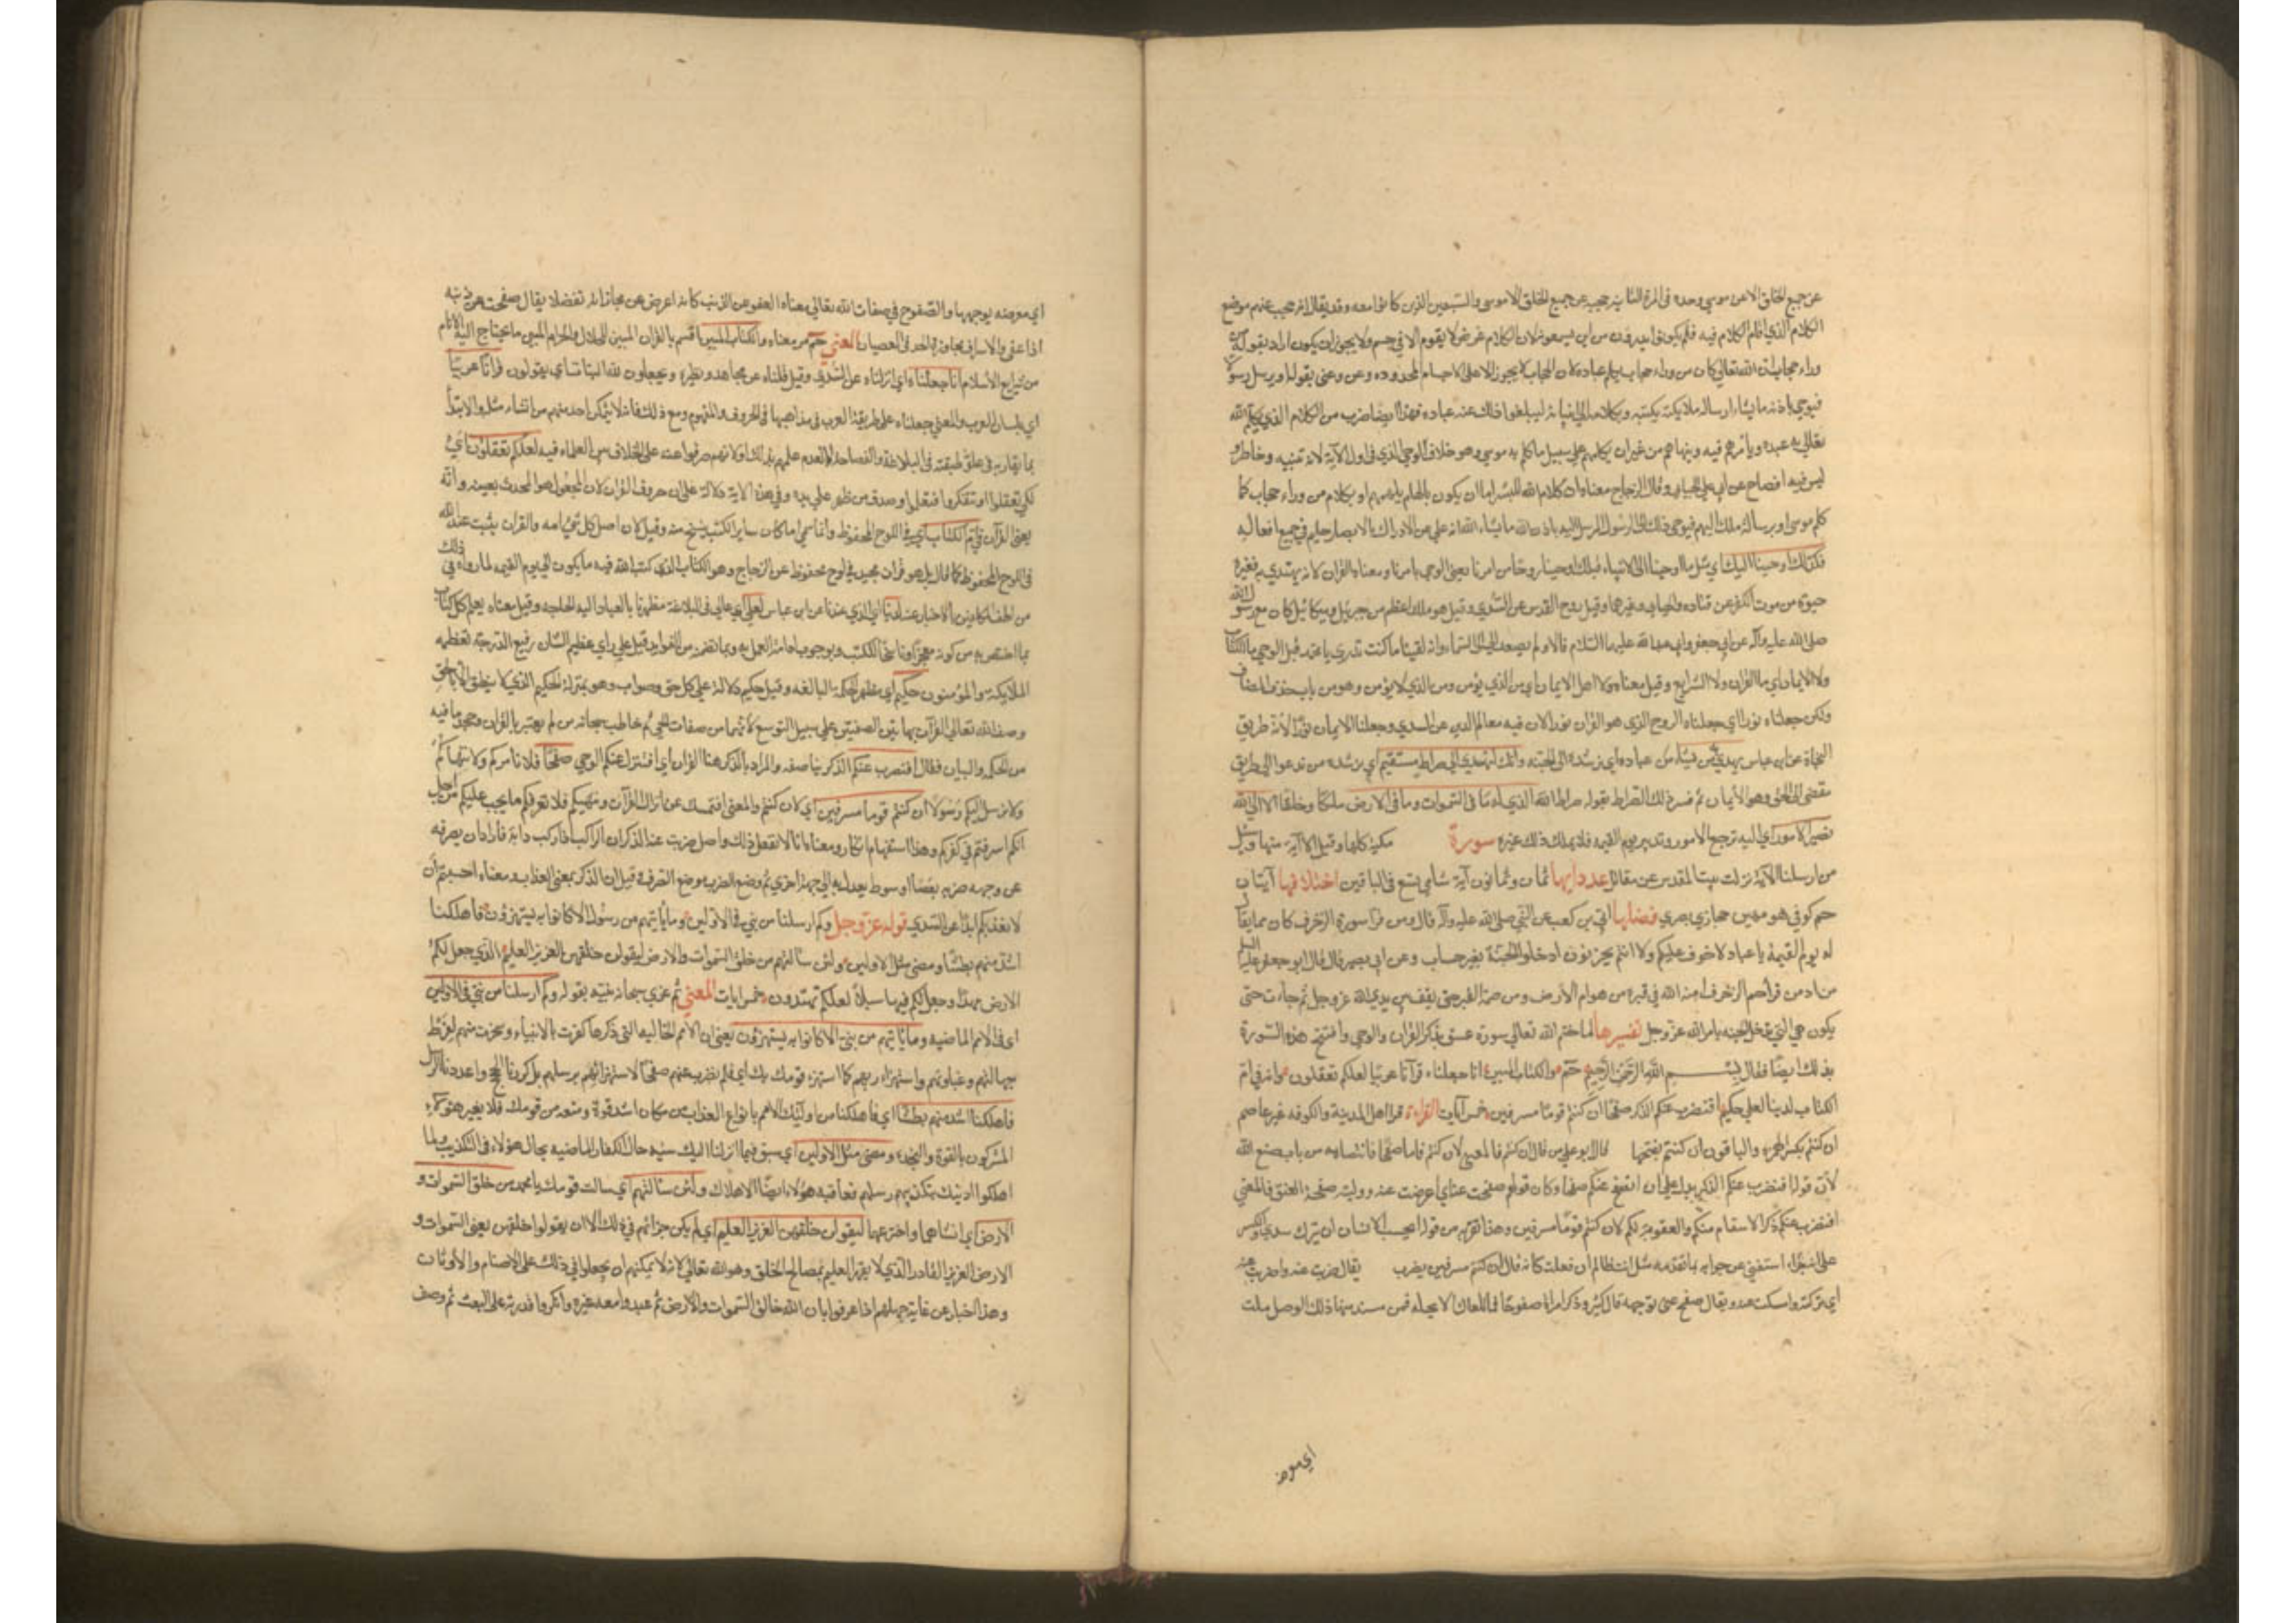 عن جميع الخلق الا عن موسي وحده في المرة الثانية يحجبه عن جميع الخلق الا موسى والسبعين الذين كانوا معه وقد يقال انه حجب عنهم موضع
الكلام الذي اقام الكلام فيه فلم يكونوا يدرون من اين يسمعونه لان الكلام عرض لا يقوم الا في جسم ولا يجوز ان يكون اراد بقوله من
وراء حجاب ان الله تعالي كان من وراء حجاب يكلم عباده لان الحجاب لا يجوز الا على الاجسام المحدوده وعن وعنى بقوله او يرسل رسولا
فيوحي باذنه ما يشاء ارساله ملائكته بكتبه وبكلامه الي انبيائه ليبلغوا ذلك عنه عباده فهذا ايضا ضرب من الكلام الذي يكلم الله
تعالي به عبده ويأمرهم فيه وينهاهم من غير ان يكلمهم علي سبيل ما كلم به موسي وهو خلاف الوحي الذي في اول الآية لانه تنبيه وخاطر
ليس فيه افصاح عن ابي علي الجبائي وقال الزجاج معناه ان كلام الله للبشر اما ان يكون بالهام يلهمهم او بكلام من وراء حجاب كما
كلم موسى او برسالة ملك اليهم فيوحي ذلك الى الرسول المرسل اليه باذن الله ما يشاء الله انه علي عن الادراك بالابصار حكيم في جميع افعاله
وكذلك اوحينا اليك اي مثل ما اوحينا الى الانبياء قبلك اوحينا روحا من امرنا يعني الوحي بامرنا ومعناه القران لانه يهتدي به ففيه
حيوة من موت الكفر عن قتاده والجبايي وغيرهما وقيل روح القدس عن السدي وقيل هو ملك اعظم من جبريل وميكائيل كان مع رسول الله
صلى الله عليه وآله عن ابي جعفر وابي عبد الله عليهما السلام قالا ولم يصعد الى السماء وانه لفينا ما كنت تدري يا محمد قبل الوحي ما الكتاب
ولا الايمان اي ما القران ولا الشرايع وقيل معناه ولا اهل الايمان اي من الذي يؤمن ومن الذي لا يؤمن وهو من باب حذف المضاف
ولكن جعلناه نورا اي جعلناه الروح الذي هو القران نورا لان فيه معالم الدين عن السدي وجعلنا الايمان نورا لانه طريق
النجاة عن ابن عباس نهدي به من نشاء من عبادنا اي نرشده الى الجنة وانك لتهدي الي صراط مستقيم اي نرشده من تدعوا الى طريق
مفضى الى الحق وهو الايمان ثم فسر ذلك الصراط بقوله صراط الله الذي له ما في السموات وما في الارض ملكا وخلقا الا الى الله
تصير الامور اي اليه ترجع الامور وتدبير يوم القيمه فلا يملك ذلك غيره سورة مكية كلها وقيل الا آية منها وسئل
من ارسلنا الآية نزلت ببيت المقدس عن مقاتل عدد ايها ثمان وثمانون آية شامي تسع في الباقين اختلافها آيتان
حم كوفي هو مهين حجازي بصري فضلها ابي بن كعب عن النبي صلى الله عليه وآله قال ومن قرا سورة الزخرف كان ممن يقال
له يوم القيمة يا عباد لا خوف عليكم ولا انتم تحزنون ادخلوا الجنة بغير حساب وعن ابي بصير قال قال ابو جعفر عليه السلم
من ادمن قراءة حم الزخرف امنه الله في قبره من هوام الارض ومن ضمة القبر حتى يقف بين يدي الله عز وجل ثم جاءت حتى
يكون هي التي تدخله الجنة بامر الله عز وجل تفسيرها لما ختم الله تعالي سورة عسق بذكر القران والوحي وافتتح هذه السورة
بذلك ايضا فقال بسم الله الرحمن الرحيم حم والكتاب المبين انا جعلناه قرآنا عربيا لعلكم تعقلون وانه في ام
الكتاب لدينا لعلي حكيم افنضرب عنكم الذكر صفحا ان كنتم قوما مسرفين خمس آيات القراءة قرا اهل المدينة والكوفه غير عاصم
ان كنتم بكسر الهمزه والباقون ان كنتم بفتحها قال ابو علي من قال ان كنتم فالمعني لان كنتم فاما صفحا فانتصابه من باب صنع الله
لان قوله افنضرب عنكم الذكر يدل علي ان اصفح عنكم صفحا وكان قولهم صفحت عنه اي اعرضت عنه ووليته صفحة العنق فالمعني
افنضرب عنكم ذكر الانتقام منكم والعقوبة لكم لان كنتم قوما مسرفين وهذا يقرب من قوله ايحسب الانسان ان يترك سدي والكسر
على انه جزاء استغنى عن جوابه بما تقدمه مثل انت ظالم ان فعلت كانه قال ان كنتم مسرفين يضرب يقال ضربت عنه واضربت عنه
اي تركته وامسكت عنه ويقال صفح عني بوجهه قال كثير وذكر امراة صفوحا فما تلقاك الا بخيله فمن مل منها ذلك الوصل ملت
اي معرضه
اي معرضه بوجهها والصفوح في صفات الله تعالي معناه العفو عن الذنب كانه اعرض عن مجازاته تفضلا يقال صفحت عن ذنبه
اذا عفي والاسراف مجاوزة الحد في العصيان المعني حم مر معناه والكتاب المبين اقسم بالقران المبين للحلال والحرام المبين ما يحتاج اليه الانام
من شرايع الاسلام انا جعلناه اي انزلناه عن السدي وقيل قلناه عن مجاهد ونظيره ويجعلون لله البنات اي يقولون قرانا عربيا
اي بلسان العرب والمعني جعلناه على طريقة العرب في مذاهبها في الحروف والمفهوم ومع ذلك فانه لا يتمكن احد منهم من انشاء مثله والابتداء
بما يقاربه في علو طبقته في البلاغة والفصاحة اما لعدم علمهم بذلك او لانهم صرفوا عنه على الخلاف بين العلماء فيه لعلكم تعقلون اي
لكي تعقلوا وتتفكروا فتعلموا صدق من ظهر علي يده وفي هذه الاية دلالة على ان حروف القران لان المجعول هو المحدث بعينه وانه
يعني القرآن في ام الكتاب اي في اللوح المحفوظ وانما سمي اما لان ساير الكتب ينسخ منه وقيل لان اصل كل شيء امه والقران يثبت عند الله
في اللوح المحفوظ كما قال بل هو قران مجيد في لوح محفوظ عن الزجاج وهو الكتاب الذي كتب الله فيه ما يكون الي يوم القيمه لما رواه في ذلك
من الحفظ لكاين بالاخبار عنه لدينا اي الذي عندنا عن ابن عباس لعلي اي عالي في البلاغة مظهر ما بالعباد اليه الحاجة وقيل معناه يعلو كل كتاب
بما اختص به من كونه معجزا وناسخا للكتب وبوجوب ادامة العمل به وبما تضمنه من الفوايد وقيل علي اي عظيم الشان رفيع الدرجة تعظمه
الملائكة والمؤمنون حكيم اي مظهر للحكمة البالغه وقيل حكيم دلالة علي كل حق وصواب وهو بمنزلة الحكيم الذي لا ينطق الا بالحق
وصف الله تعالي القرآن بهاتين الصفتين علي سبيل التوسع لانهما من صفات الحي ثم خاطب سبحانه من لم يعتبر بالقران وجحد ما فيه
من الحكم والبيان فقال افنضرب عنكم الذكر صفحا والمراد بالذكر هنا القران اي افنترك عنكم الوحي صفحا فلا نامركم ولا ننهاكم
ولا نرسل اليكم رسولا ان كنتم قوما مسرفين اي لان كنتم والمعني افنمسك عن انزال القرآن ونهملكم فلا نعرفكم ما يجب عليكم من اجل
انكم اسرفتم في كفركم وهذا استفهام انكار ومعناه انا لا نفعل ذلك واصل ضربت عنه الذكر ان الراكب اذا ركب دابة فاراد ان يصرفه
عن وجهه ضربه بعصا او سوط ليعدل به الي جهة اخري ثم وضع الضرب موضع الصرف وقيل ان الذكر بمعنى العذاب ومعناه احسبتم ان
لا نعذبكم ابدا عن السدي قوله عز وجل وكم ارسلنا من نبي في الاولين وما ياتيهم من رسول الا كانوا به يستهزؤن فاهلكنا
اشد منهم بطشا ومضى مثل الاولين ولئن سالتهم من خلق السموات والارض ليقولن خلقهن العزيز العليم الذي جعل لكم
الارض مهدا وجعل لكم فيها سبلا لعلكم تهتدون خمس ايات المعني ثم عزي سبحانه نبيه بقوله وكم ارسلنا من نبي في الاولين
اي في الامم الماضيه وما ياتيهم من نبي الا كانوا به يستهزؤن يعني ان الامم الخاليه التي ذكرها كفرت بالانبياء وسخرت منهم لفرط
جهالتهم وغباوتهم واستهزاء بهم كما استهزء قومك بك اي فلم نضرب عنهم صفحا لاستهزائهم برسلهم بل كررنا الحجج واعدنا الرسل
فاهلكنا اشد منهم بطشا اي فاهلكنا من اولئك الامم بانواع العذاب من كان اشد قوة ومنعه من قومك فلا يغتر هؤلاء
المشركون بالقوة والنجدة ومضى مثل الاولين اي سبق فيما انزلنا اليك شبه حال الكفار الماضيه بحال هؤلاء في التكذيب ولما
اهلكوا اولئك بتكذيبهم رسلهم فعاقبة هؤلاء ايضا الاهلاك ولئن سالتهم اي سالت قومك يا محمد من خلق السموات و
الارض اي انشاهما واخترعهما ليقولن خلقهن العزيز العليم اي لم يكن جوابهم في ذلك الا ان يقولوا خلقهن يعني السموات و
الارض العزيز القادر الذي لا يقهر العليم بمصالح الخلق وهو الله تعالي لانه لا يمكنهم ان يحيلوا في ذلك على الاصنام والاوثان
وهذا اخبار عن غاية جهلهم اذا عرفوا بان الله خالق السموات والارض ثم عبدوا معه غيره وانكروا قدرته على البعث ثم وصف